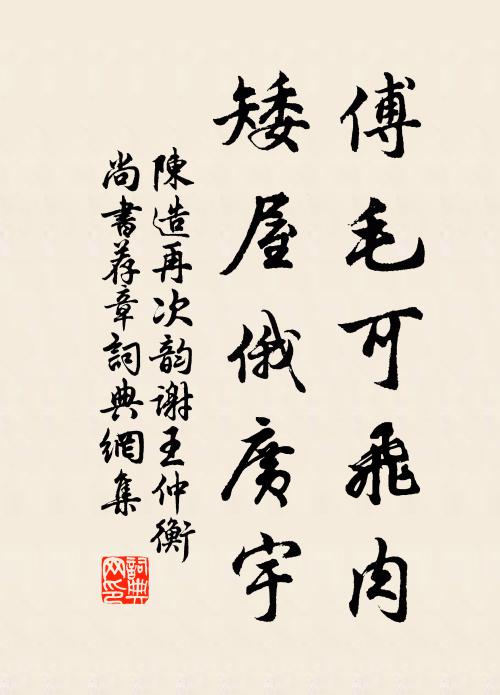 傅毛可飛肉
矮屋俄廣宇
陳造再次韵謝王仲衡
尚書荐章詞典網集
詞典网印